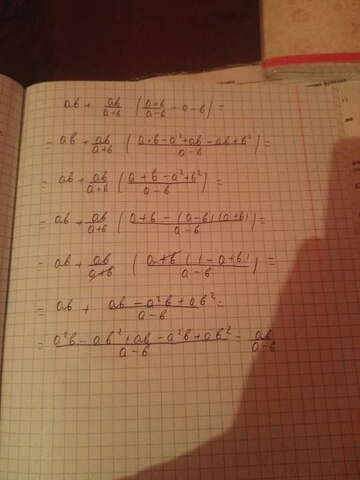 ab + ab/(a+b) ((a+b)/(a-b) - a - b) =
= ab + ab/(a+b) ((a+b-a²+ab-ab+b²)/(a-b)) =
= ab + ab/(a+b) ((a+b-a²+b²)/(a-b)) =
= ab + ab/(a+b) ((a+b-(a-b)(a+b))/(a-b)) =
= ab + ab/(a+b) ((a+b)(1-a+b)/(a-b)) =
= ab + (ab-a²b+ab²)/(a-b) =
= (a²b-ab²+ab-a²b+ab²)/(a-b) = ab/(a-b)